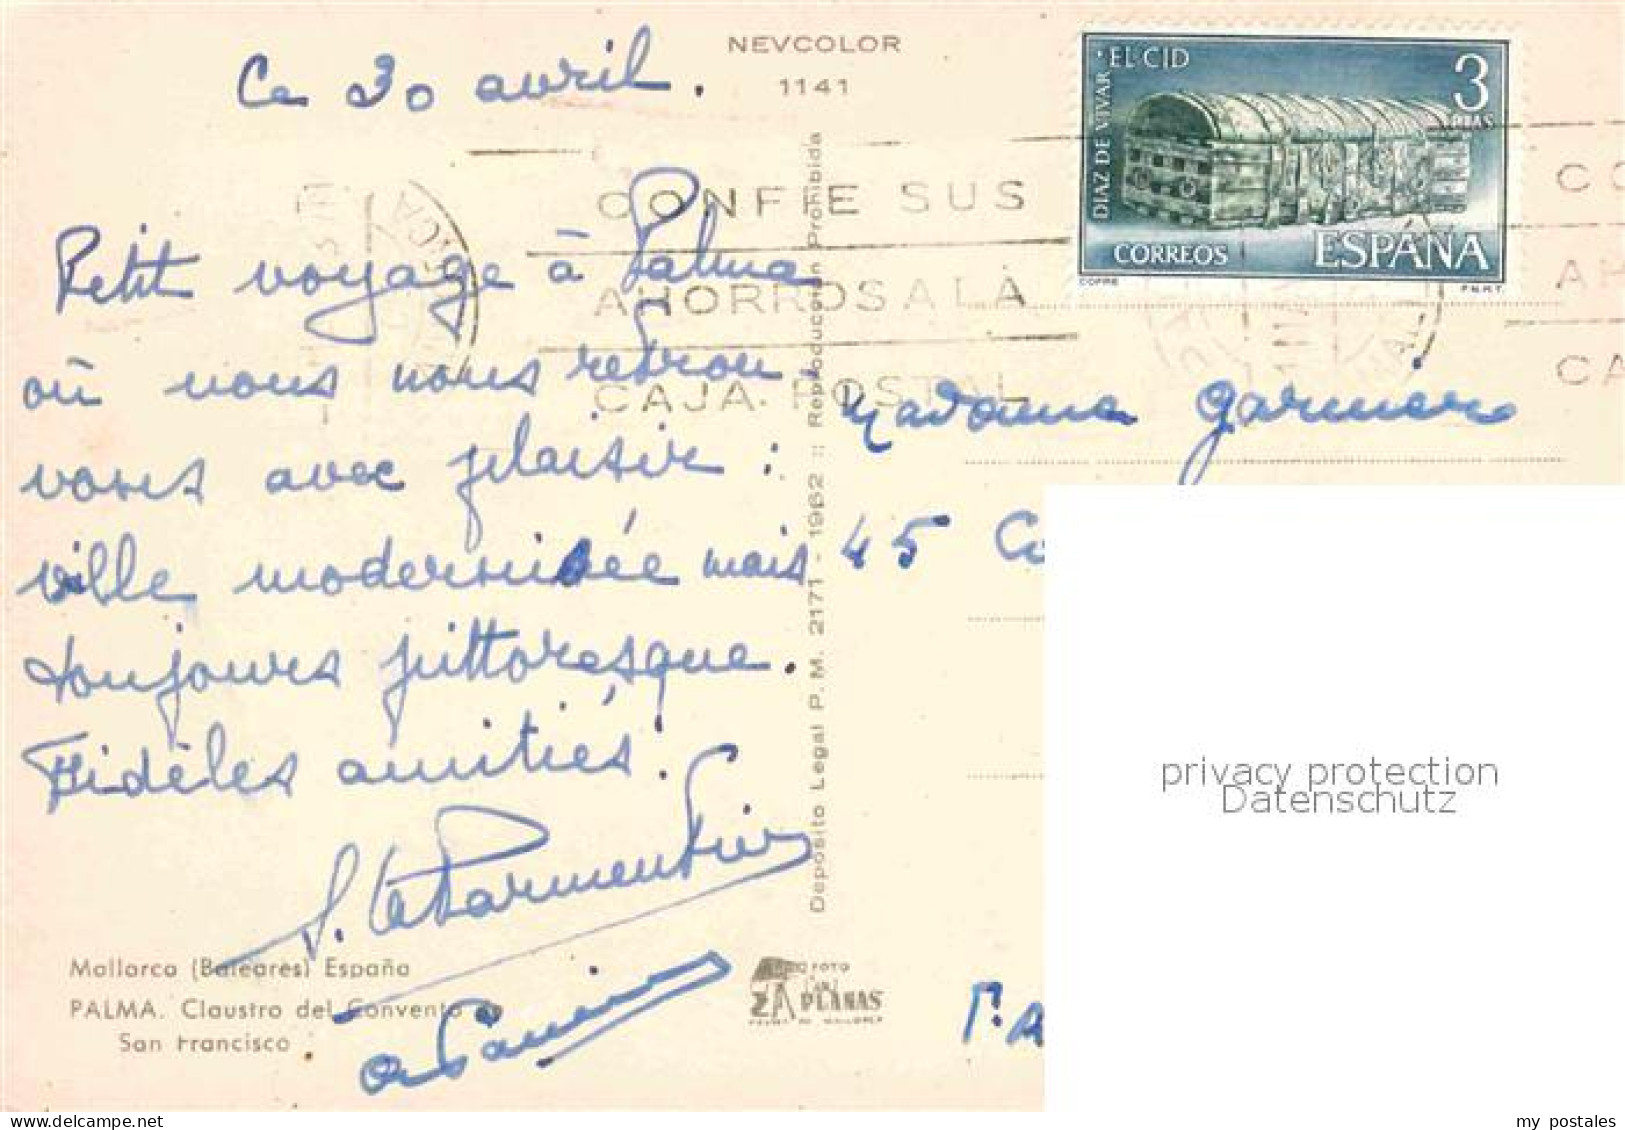 NEVCOLOR
1141
Ce 30 avril.
Petit voyage à Palma
où nous nous retrou-
vons avec plaisir :
ville modernisée mais
toujours pittoresque.
Fidèles amitiés.
Mallorca (Baleares) España
PALMA. Claustro del Convento de
San Francisco
Deposito Legal P. M. 2171 - 1962 :: Reproducción Prohibida
FOTO
PLANAS
PALMA DE MALLORCA
CONFIE SUS
AHORROS A LA
CAJA POSTAL
EL CID
3
PTAS
DIAZ DE VIVAR
CORREOS
ESPAÑA
COFRE
F.N.M.T.
CO
AH
CA
Madame
45
privacy protection
Datenschutz
Delcampe.net
my postales